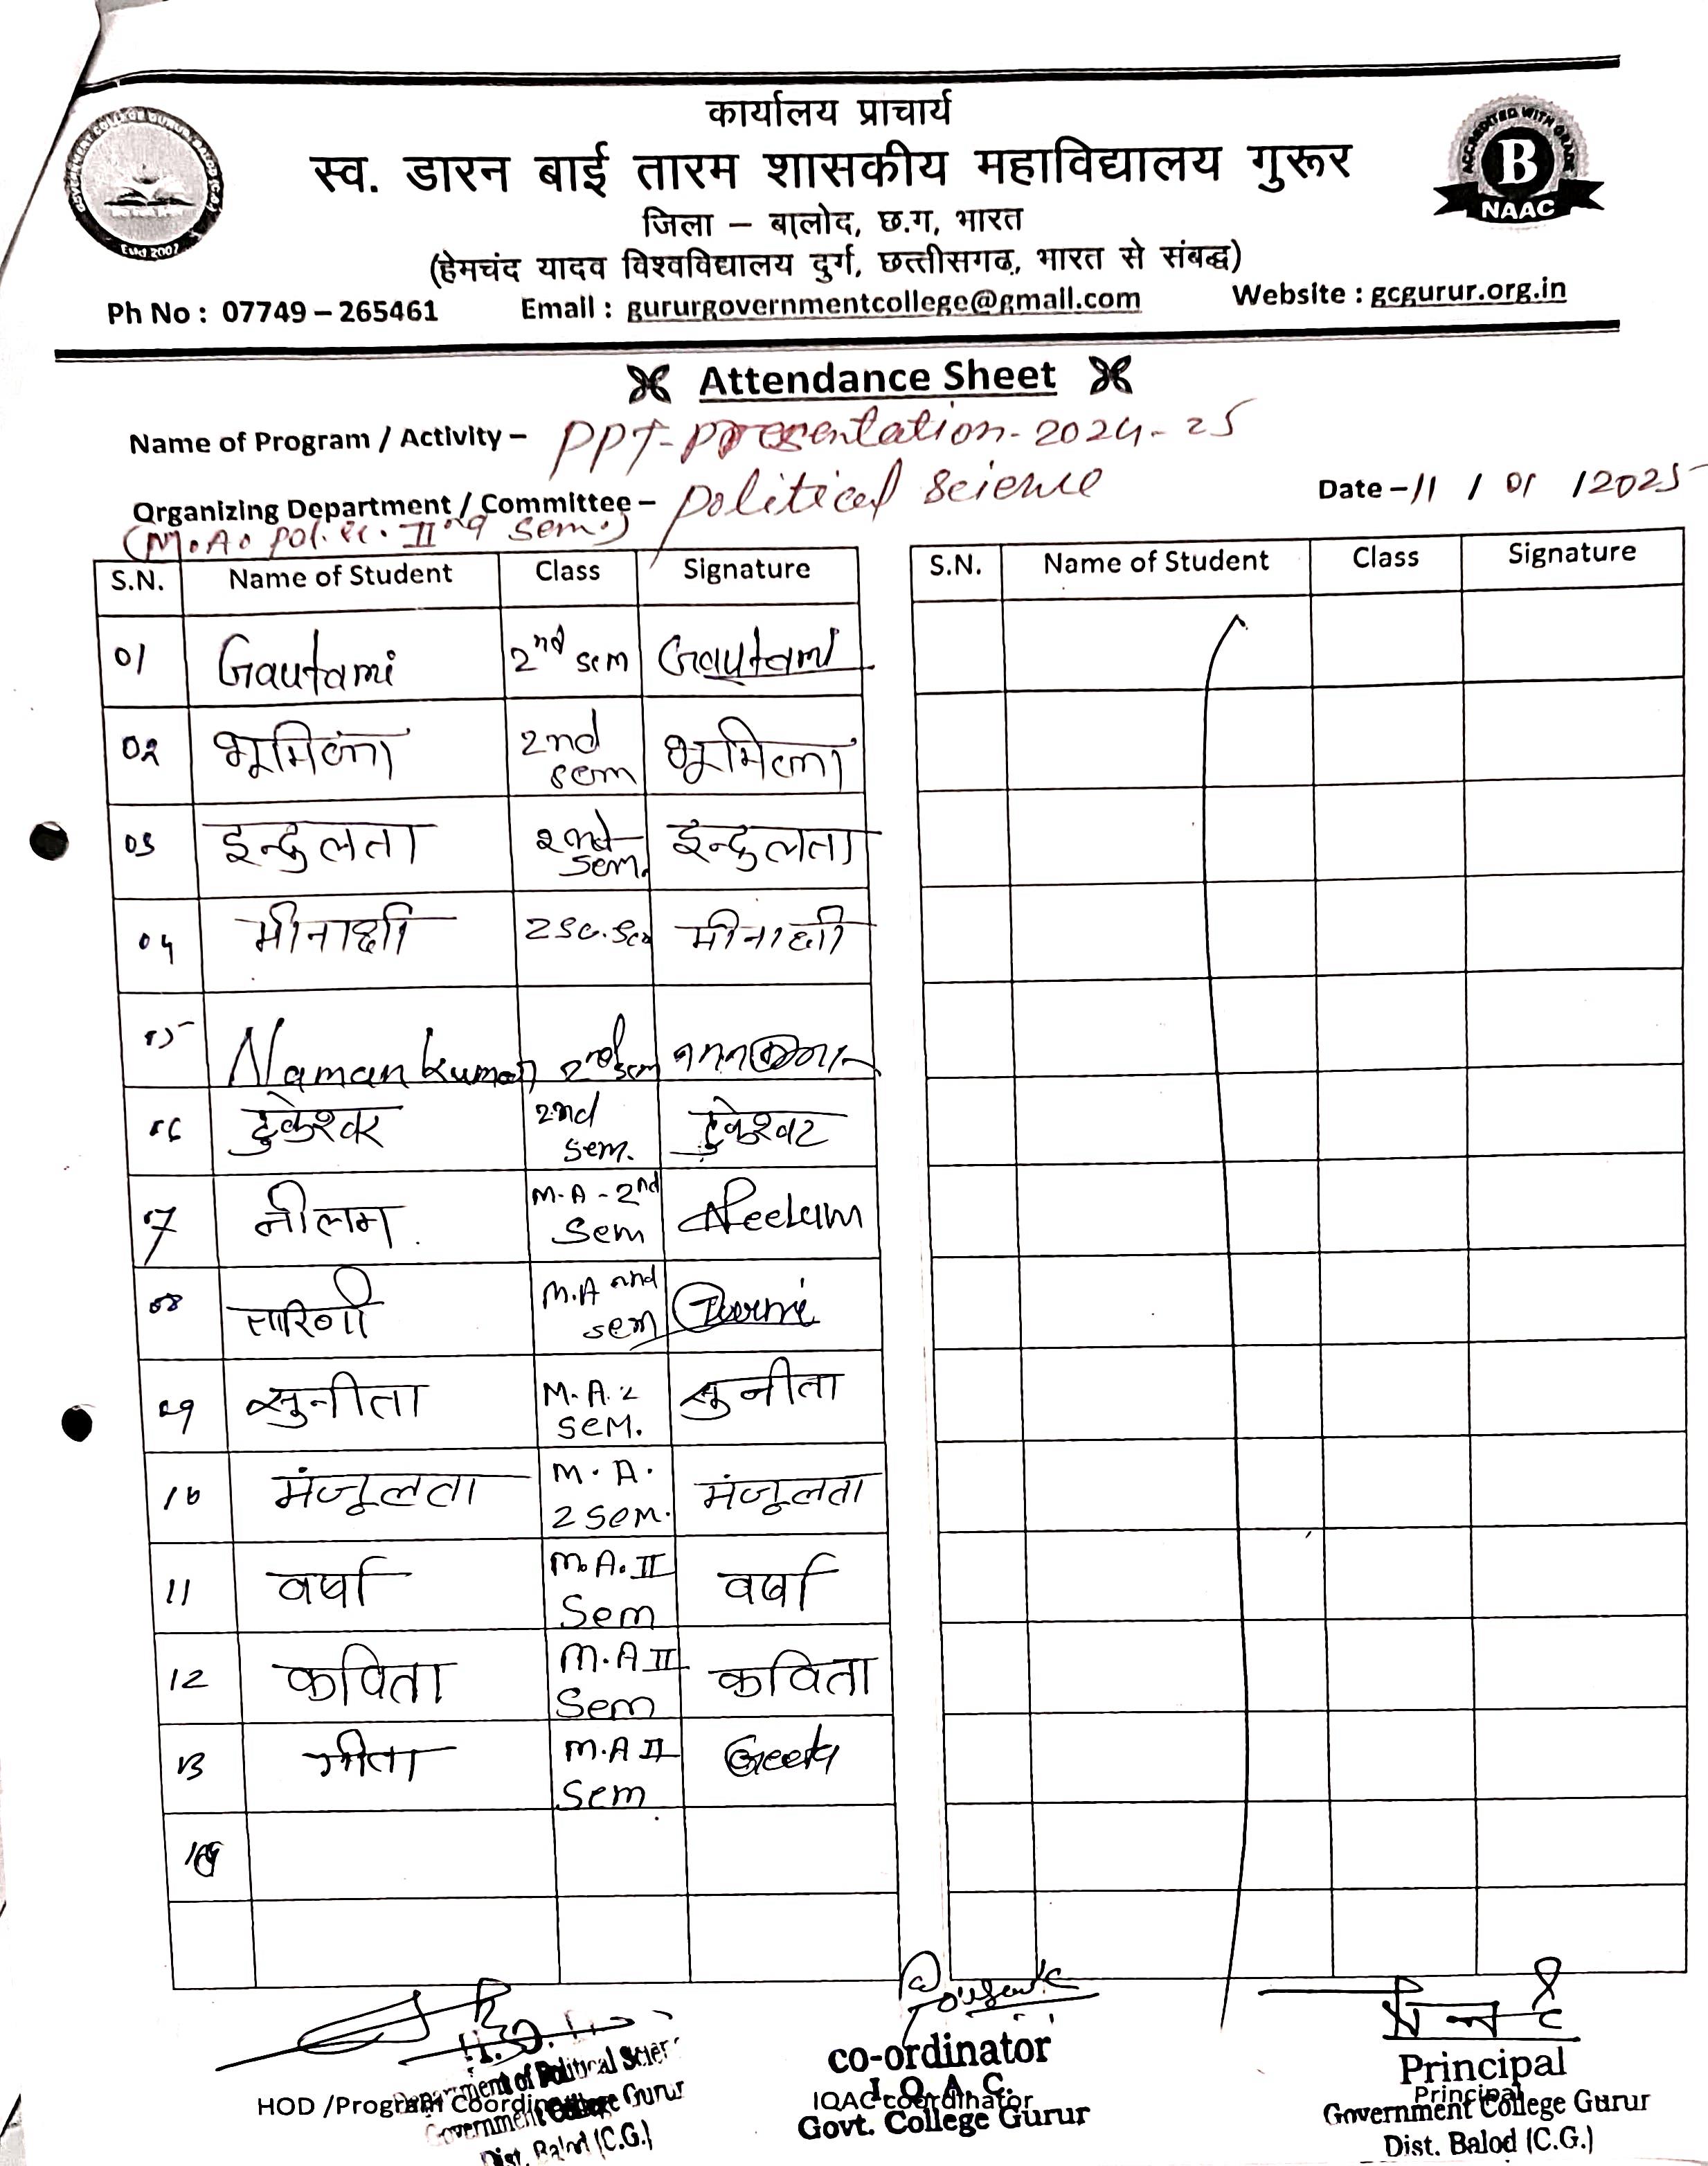 कार्यालय प्राचार्य
स्व. डारन बाई तारम शासकीय महाविद्यालय गुरूर
जिला – बालोद, छ.ग, भारत
(हेमचंद यादव विश्वविद्यालय दुर्ग, छत्तीसगढ, भारत से संबद्ध)
Ph No : 07749 – 265461 Email : gururgovernmentcollege@gmail.com Website : gcgurur.org.in
GOVERNMENT COLLEGE GURUR, BALOD (C.G.)
Estd 2007
ACCREDITED WITH GRADE
B
NAAC
Attendance Sheet
Name of Program / Activity – PPT-presentation-2024-25
Organizing Department / Committee – political science Date – 11 / 01 / 2025
(M.A. pol. sc. IInd sem.)
S.N. Name of Student Class Signature S.N. Name of Student Class Signature
01 Gautami 2nd sem Gautami
02 भूमिका 2nd sem भूमिका
03 इन्दुलता 2nd sem. इन्दुलता
04 मीनाक्षी मीनाक्षी
05 Naman kumar 2nd sem
06 टुकेश्वर 2nd sem. टुकेश्वर
07 नीलम M.A-2nd Sem Neelam
08 तारिणी M.A 2nd sem
09 सुनीता M.A.2 SEM. सुनीता
10 मंजूलता M.A. 2 sem. मंजूलता
11 वर्षा M.A.II Sem वर्षा
12 कविता M.A II Sem कविता
13 गीता M.A II Sem Geeta
14
H.O.D.
Department of Political Science
HOD /Program Coordinator
Government College Gurur
Dist. Balod (C.G.)
co-ordinator
I. Q. A. C.
IQAC coordinator
Govt. College Gurur
Principal
Principal
Government College Gurur
Dist. Balod (C.G.)